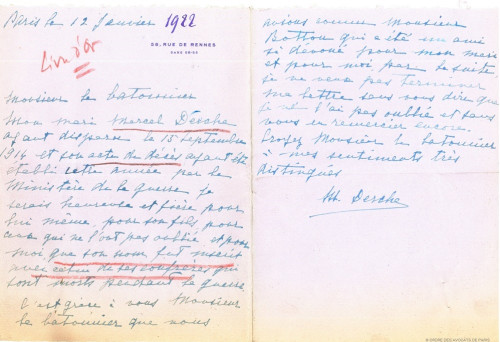 Paris le 12 Janvier 1922
58, RUE DE RENNES
PARIS
Livre d'or
Monsieur le batonnier
Mon mari Marcel Desche
ayant disparu le 15 septembre
1914 et son acte de décès ayant été
établi cette année par le
Ministère de la guerre je
serais heureuse et fière pour
lui même, pour son fils, pour
ceux qui ne l'ont pas oublié et pour
moi que son nom fut inscrit
avec celui de ses confrères qui
sont morts pendant la guerre
C'est grâce à vous Monsieur
le bâtonnier que nous
avons connu Monsieur
Botton qui a été un ami
si dévoué pour mon mari
et pour moi par la suite
je ne veux pas terminer
ma lettre sans vous dire que
je ne l'ai pas oublié et sans
vous en remercier encore.
Croyez Monsieur le batonnier
à mes sentiments très
distingués
M. Desche
© ORDRE DES AVOCATS DE PARIS